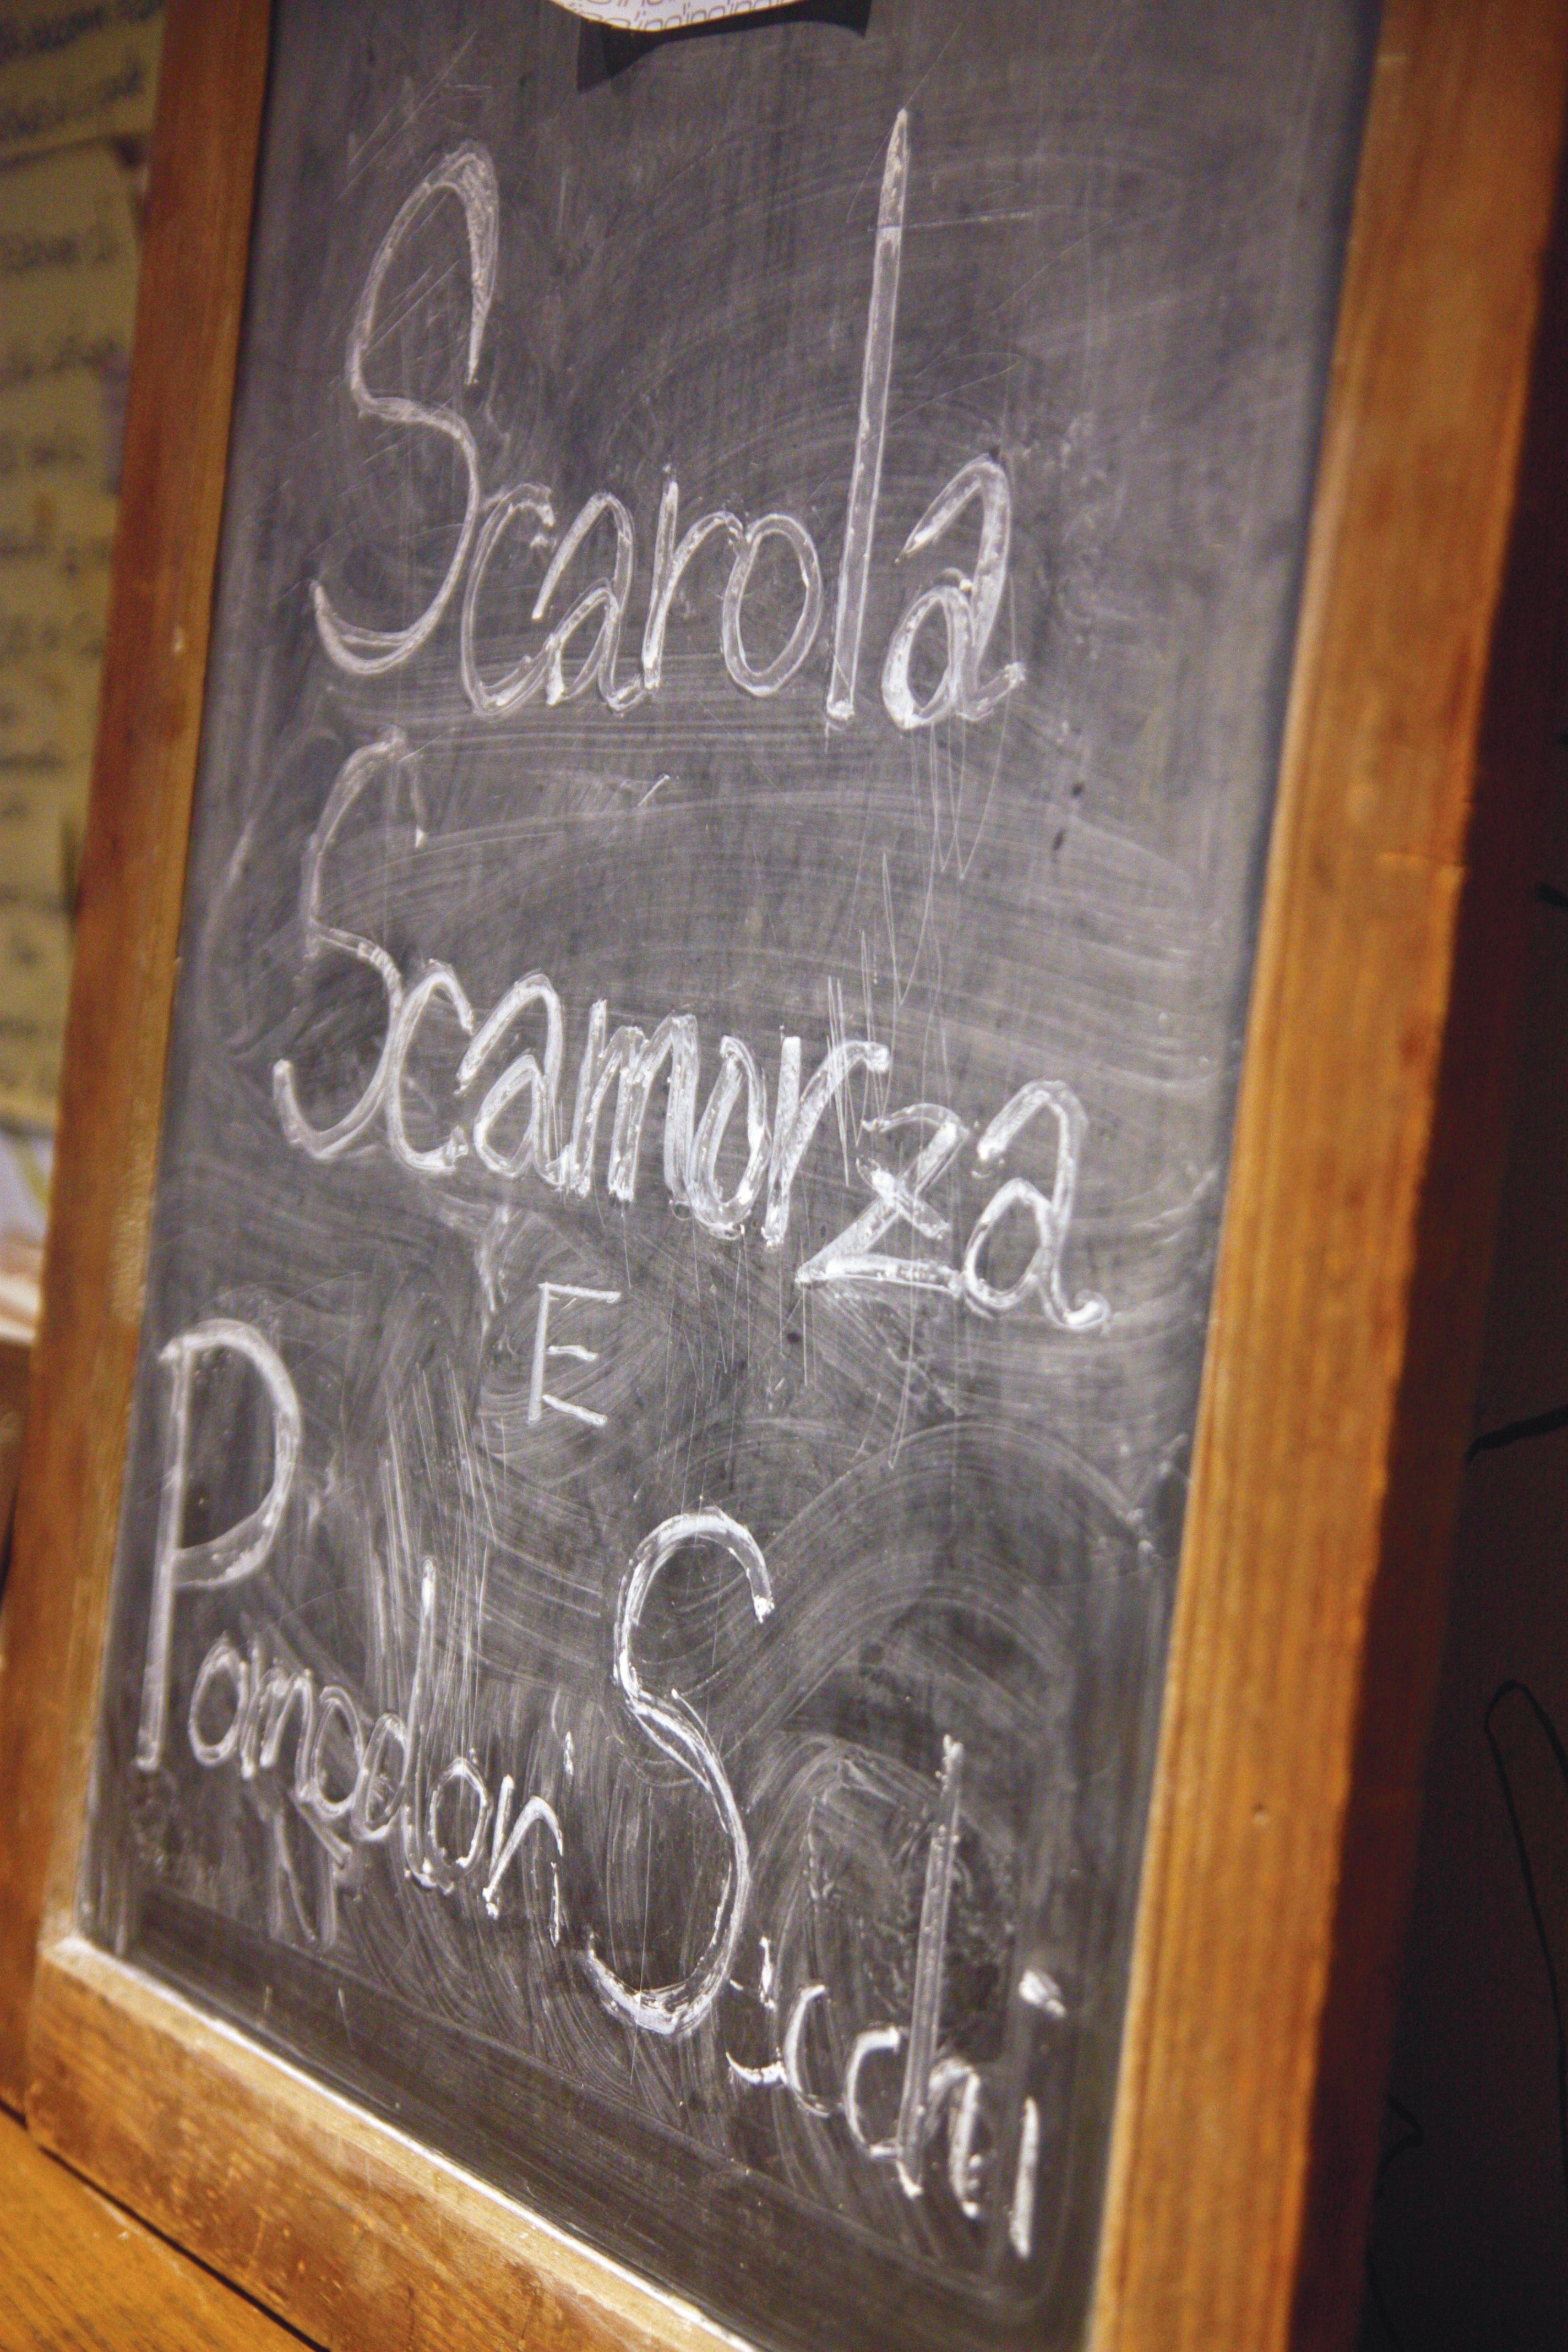 Scarola
Scamorza
E
Pomodori Sicchi